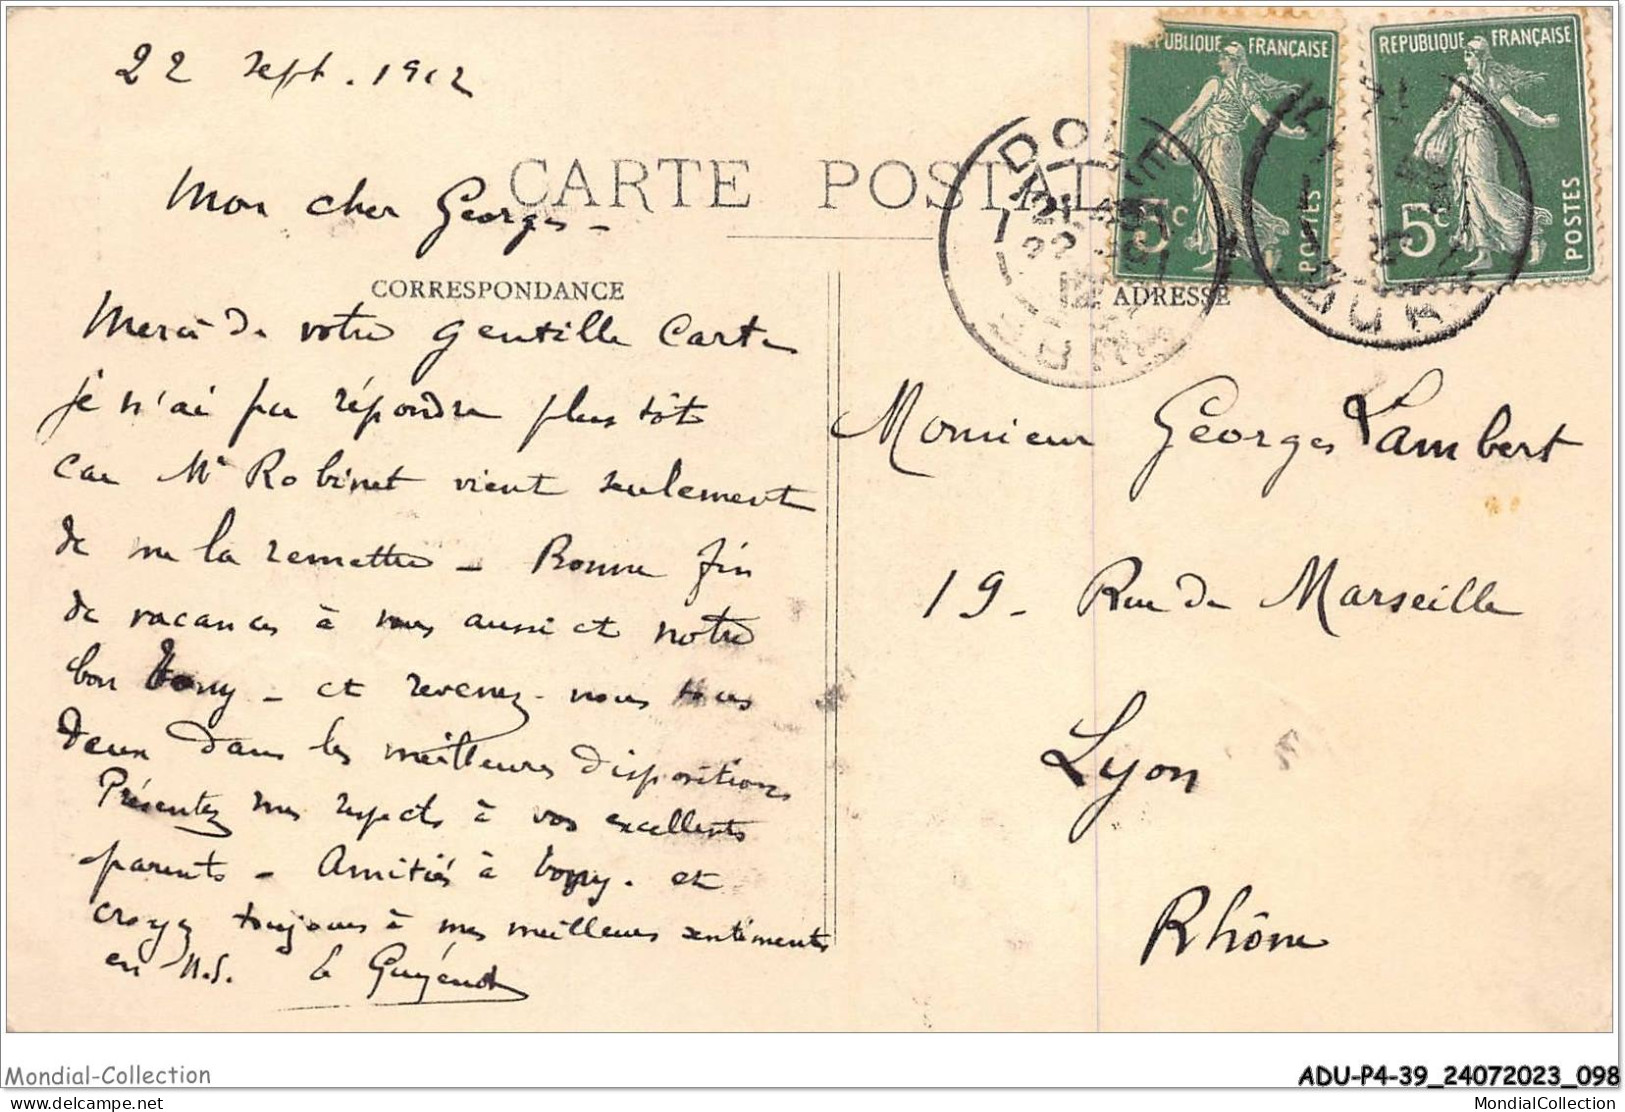 22 Sept. 1912
REPUBLIQUE FRANÇAISE
REPUBLIQUE FRANÇAISE
5c POSTES
5c POSTES
CARTE POSTALE
Mon cher Georges -
CORRESPONDANCE
ADRESSE
DOLE
JURA
Merci de votre gentille carte
je n'ai pu répondre plus tôt
car Mr Robinet vient seulement
de me la remettre - Bonne fin
de vacances à vous aussi et notre
bon Tony - et revenez-nous tous
deux dans les meilleures dispositions
Présentez mes respects à vos excellents
parents - Amitiés à Tony. et
croyez toujours à mes meilleurs sentiments
en N.S.
Monsieur Georges Lambert
19 - Rue de Marseille
Lyon
Rhône
Mondial-Collection
ADU-P4-39_24072023_098
delcampe.net
MondialCollection